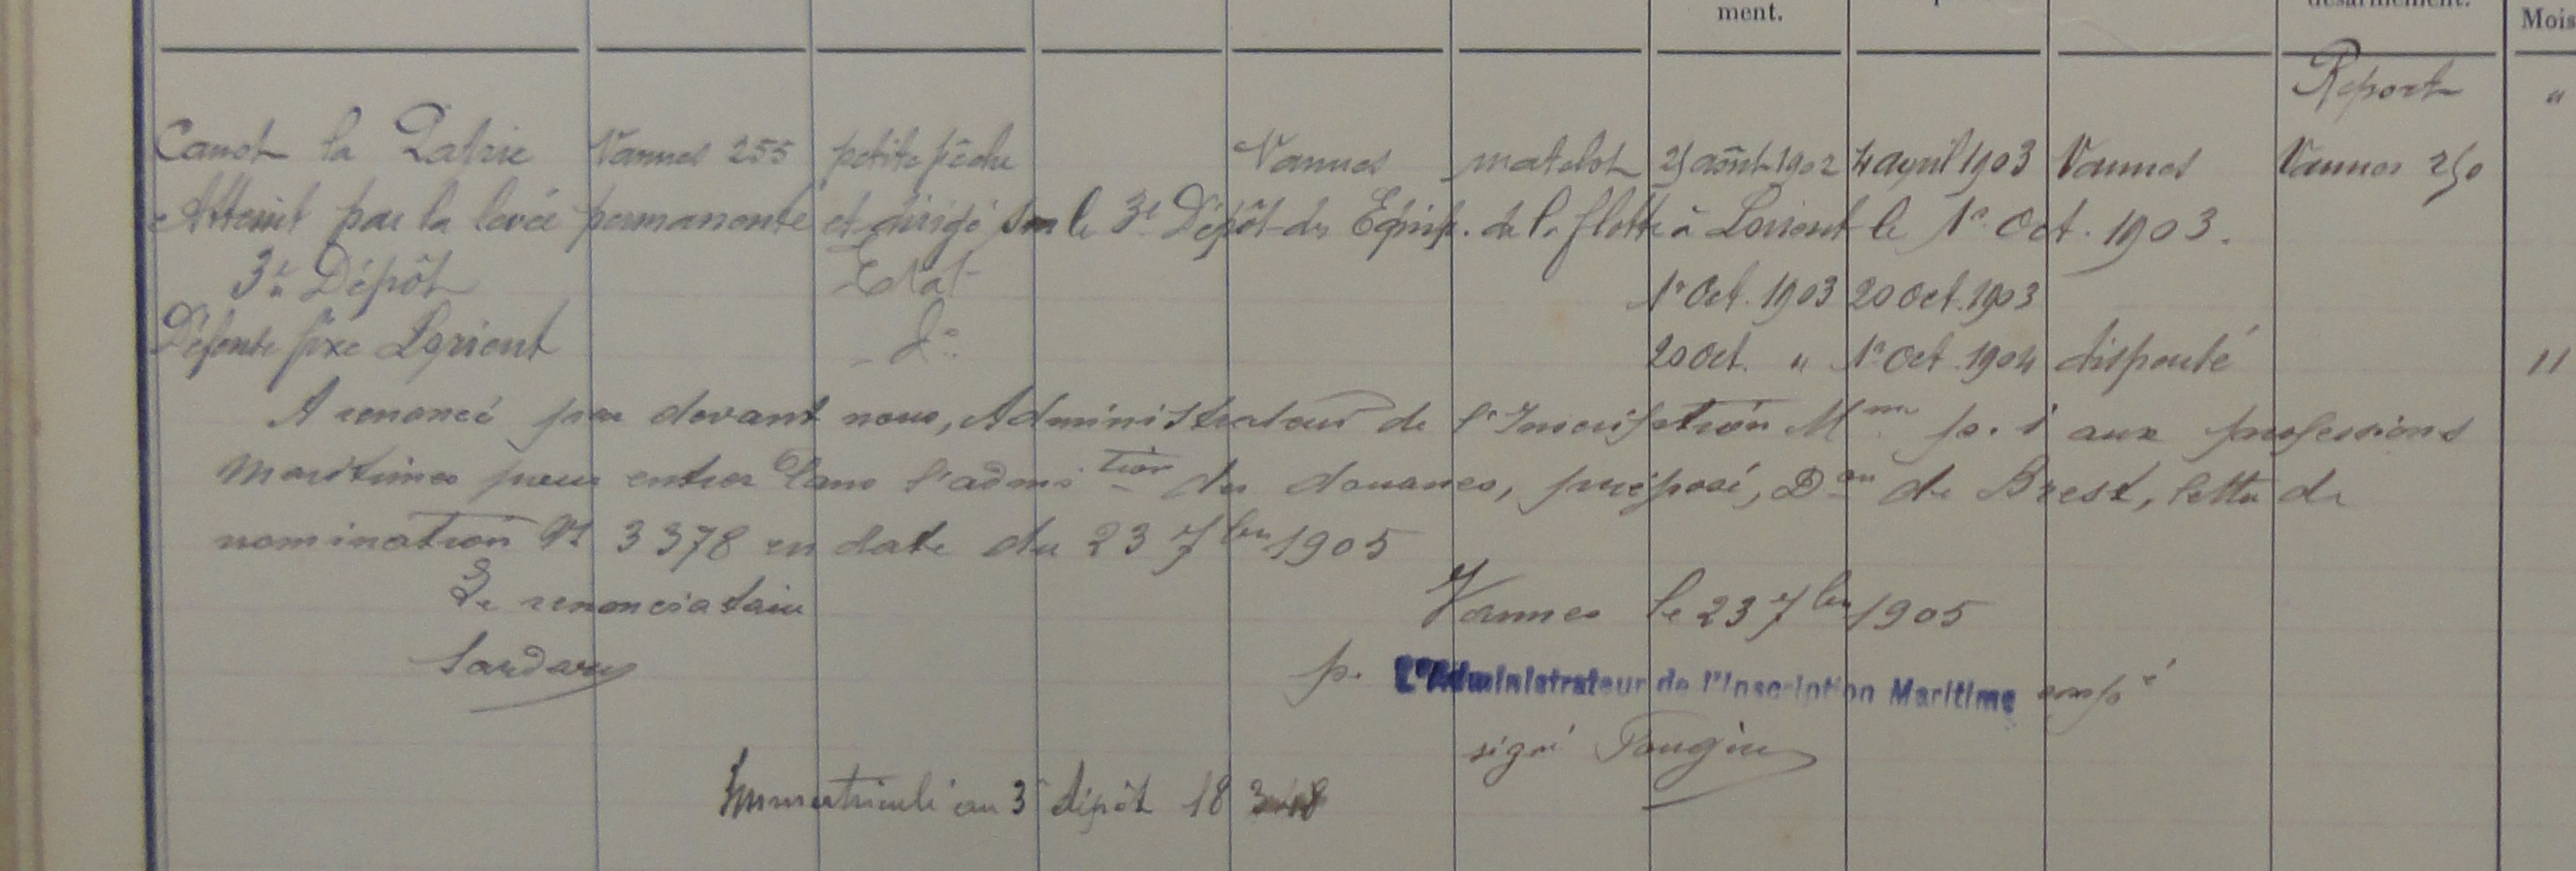 ment.
désarmement.
Mois
Report "
Canot la Patrie Vannes 255 petite pêche Vannes matelot 25 août 1902 4 avril 1903 Vannes Vannes 250
Atteint par la levée permanente et dirigé sur le 3e Dépôt des Equip. de la flotte à Lorient le 1er Oct. 1903.
3e Dépôt Etat 1er Oct. 1903 20 oct. 1903
Défense fixe Lorient do 20 Oct. " 1er Oct. 1904 dispensé 11
A renoncé par devant nous, Administrateur de l'Inscription Mme p. i aux professions
maritimes pour entrer dans l'admition des douanes, préposé, Don de Brest, lettre de
nomination No 3378 en date du 23 7bre 1905
Le renonciataire Vannes le 23 7bre 1905
p. L'Administrateur de l'Inscription Maritime empé
signé
Immatriculé au 3e dépôt 18